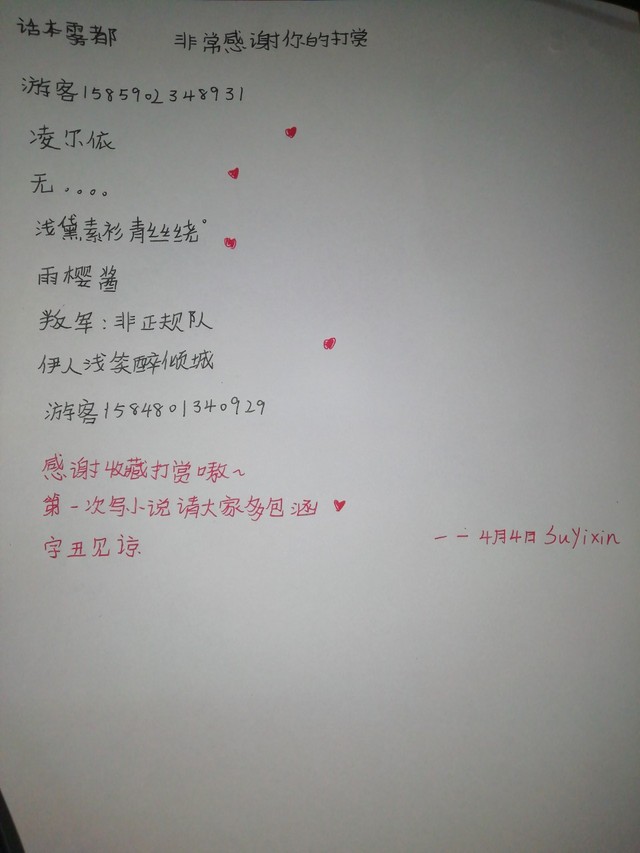 话本雾都 非常感谢你的打赏
游客1585902348931
凌尔依
无。。。。
浅黛素衫青丝绕°
雨樱酱
叛军:非正规队
伊人浅笑醉倾城
游客1584801340929
感谢收藏打赏嗷~
第一次写小说请大家多包涵
字丑见谅.
——4月4日SuYixin